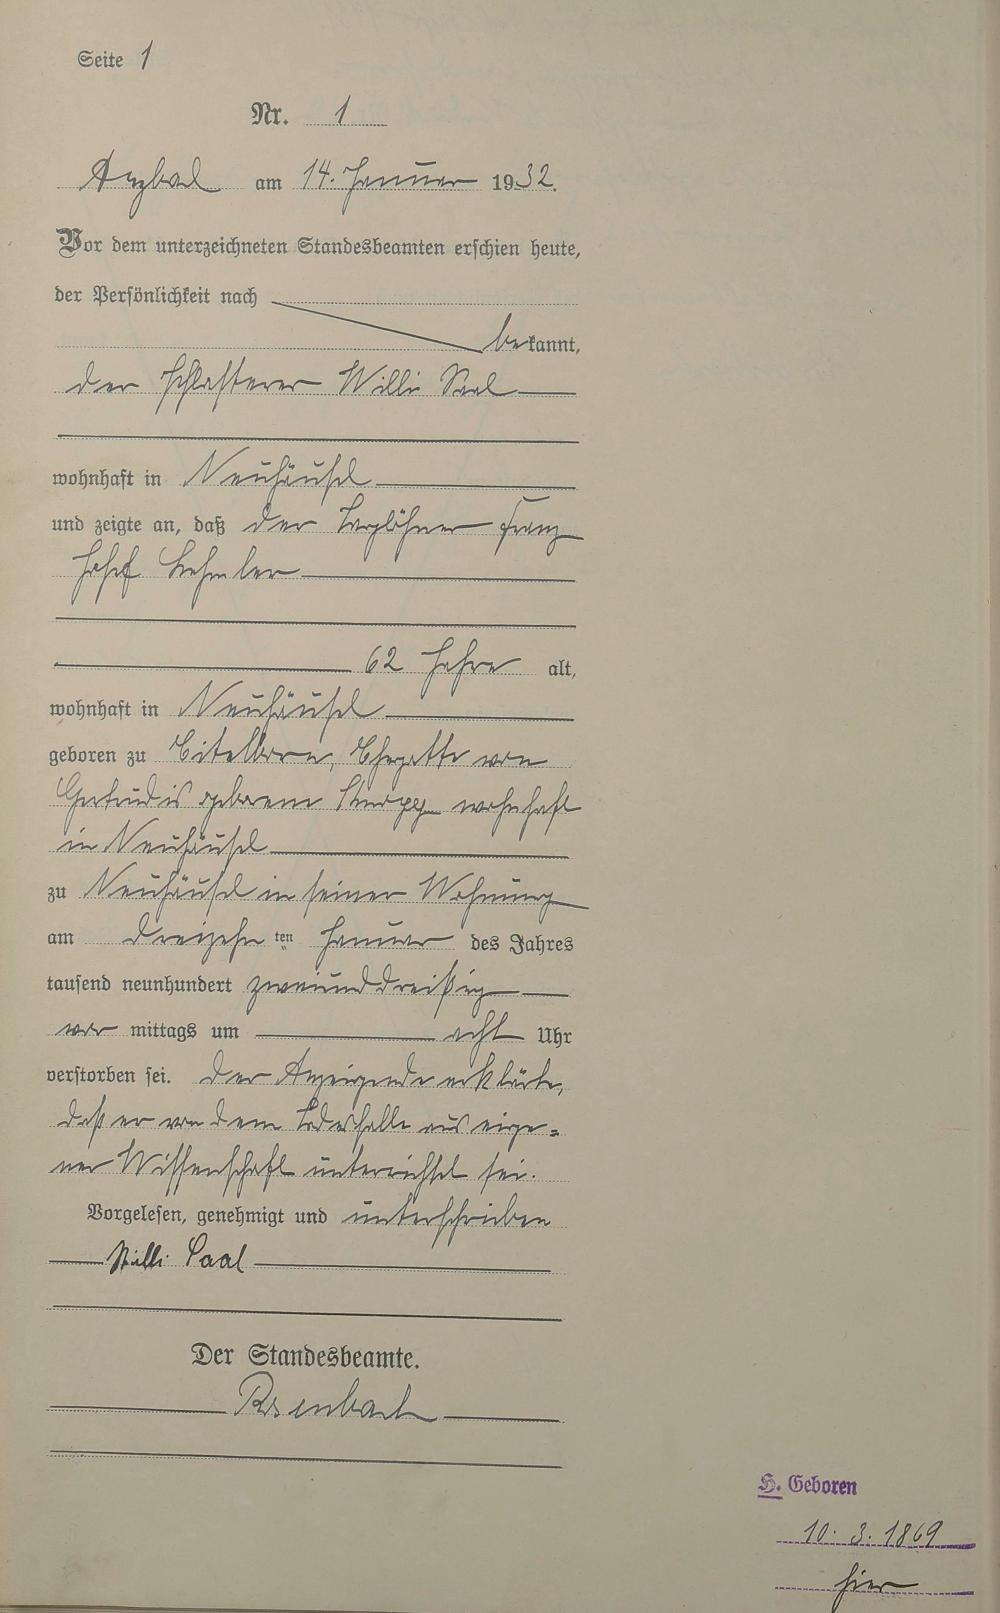 Seite 1
Nr. 1
Arzbach am 14. Januar 1932.
Vor dem unterzeichneten Standesbeamten erschien heute,
der Persönlichkeit nach
bekannt,
der Willi Saal
wohnhaft in Neuhäusel
und zeigte an, daß der Taglöhner Franz
Josef
62 Jahre alt,
wohnhaft in Neuhäusel
geboren zu Eitelborn, Ehegatte von
Gertrudis geborene wohnhaft
in Neuhäusel
zu Neuhäusel in seiner Wohnung
am dreizehnten Januar des Jahres
tausend neunhundert zweiunddreißig
vor mittags um acht Uhr
verstorben sei. Der Anzeigende erklärte,
daß er von dem Todesfalle aus eige=
ner Wissenschaft unterrichtet sei.
Vorgelesen, genehmigt und unterschrieben
Willi Saal
Der Standesbeamte.
Rosenbach
H. Geboren
10. 3. 1869
hier